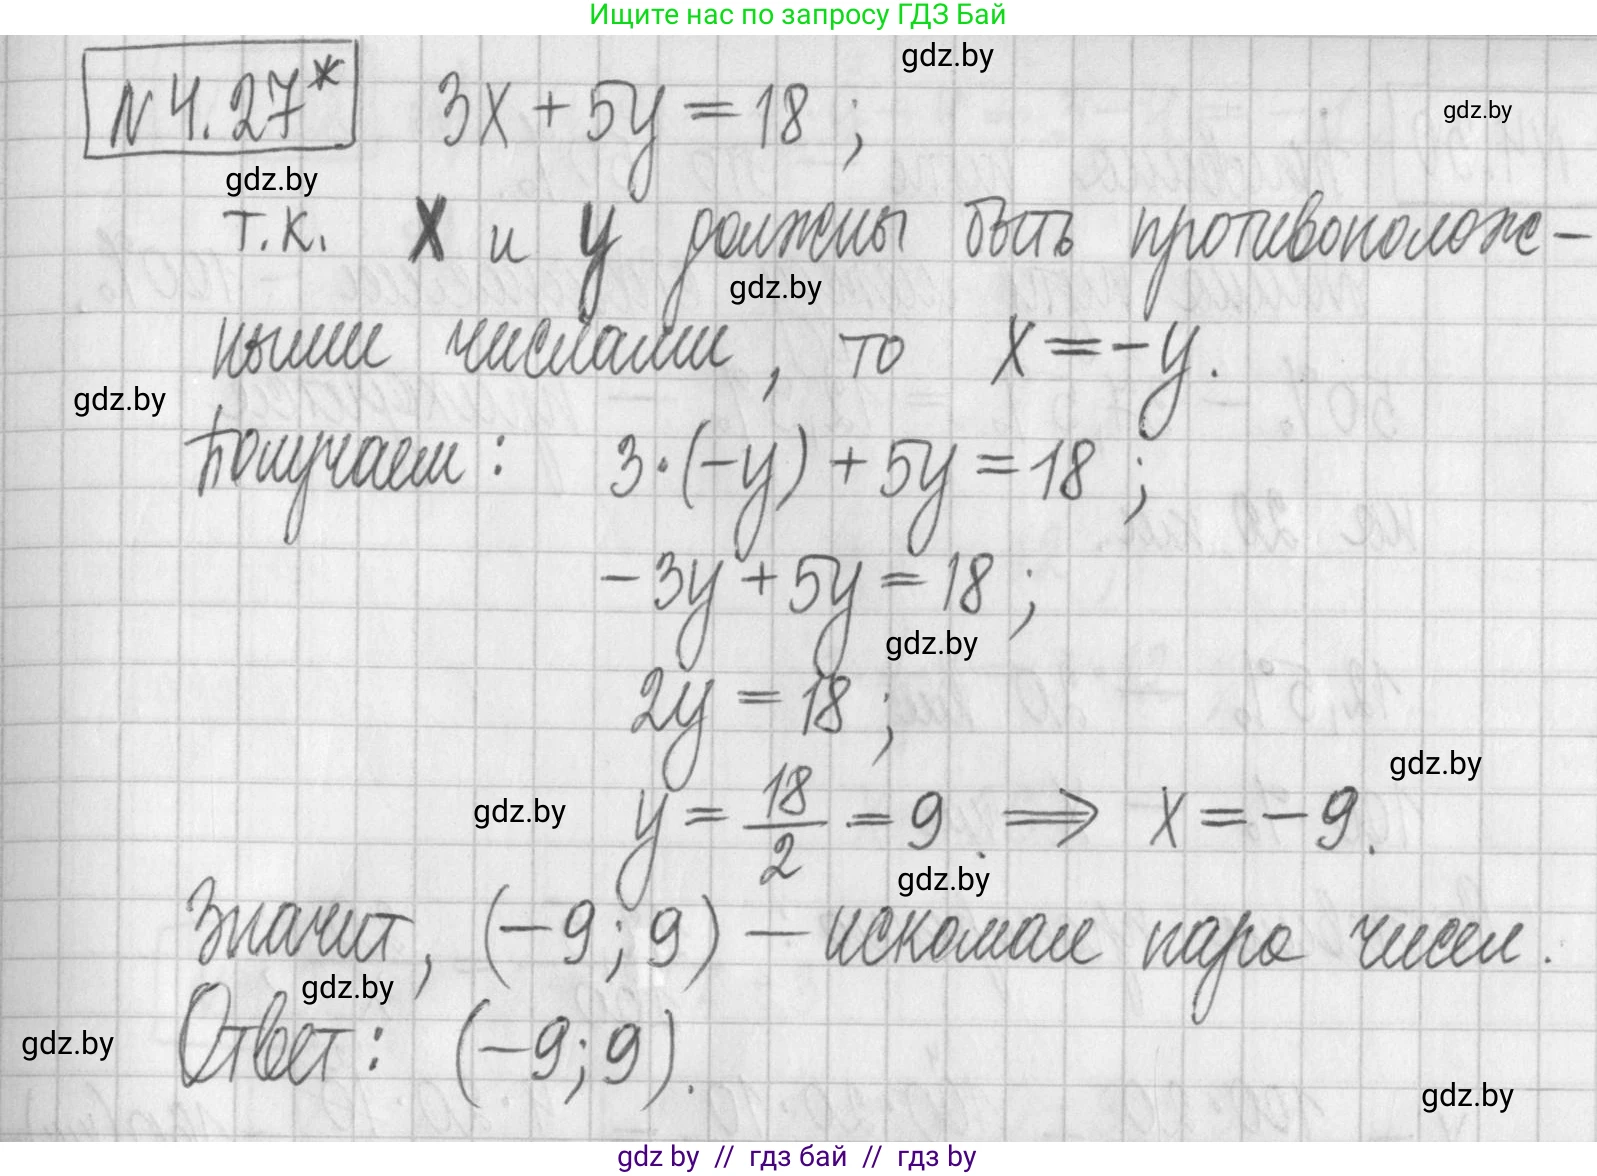 Ищите нас по запросу ГДЗ Бай
gdz.by
№4.27* 3x + 5y = 18 ;
gdz.by
gdz.by
т.к. x и y должны быть противополож-
gdz.by
ными числами, то x = -y.
gdz.by
Получаем: 3·(-y) + 5y = 18 ;
-3y + 5y = 18 ;
gdz.by
2y = 18 ;
gdz.by
gdz.by
y = 18/2 = 9. ⟹ x = -9.
gdz.by
Значит, (-9; 9) — искомая пара чисел.
gdz.by
Ответ: (-9; 9).
gdz.by
gdz.by
gdz by // гдз бай // гдз by